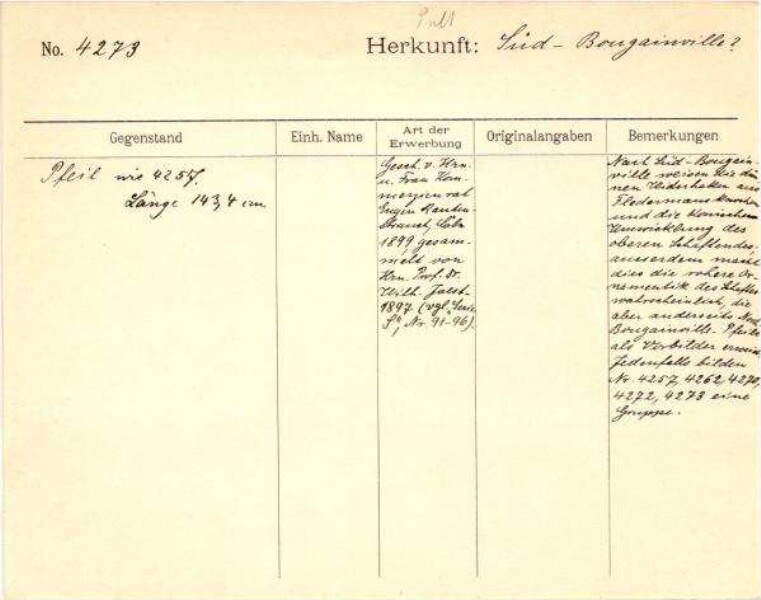 Pult
No. 4273
Herkunft: Süd-Bougainville?
Gegenstand
Einh. Name
Art der
Erwerbung
Originalangaben
Bemerkungen
Pfeil wie 4257.
Länge 143,4 cm
Gesch. v. Hrn.
u. Frau Kom-
merzienrat
Eugen Rauten-
strauch, Cöln
1899 gesam-
melt von
Hrn. Prof. Dr.
Wilh. Joest
1897 (vgl. "Serie
S", Nr. 91-96).
Nach Süd-Bougain-
ville weisen die dün-
nen Widerhaken aus
Fledermausknochen
und die konischen
Umwicklung des
oberen Schaftendes,
ausserdem macht
dies die rohere Or-
namentik des Schaftes
wahrscheinlich, die
aber anderseits Nord-
Bougainville-Pfeile
als Vorbilder
Jedenfalls bilden
Nr. 4257, 4262, 4270,
4272, 4273 eine
Gruppe.